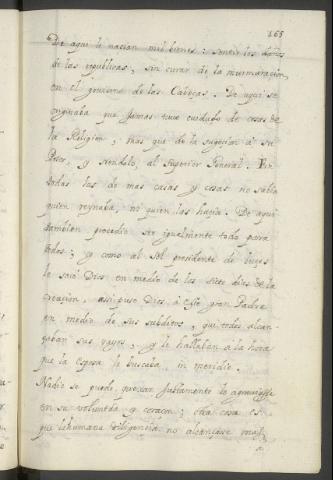 165
De aqui le nacian mil bienes: sentir los daños
de las republicas, sin curar de la murmuracion,
en el govierno de las Cabeças. De aqui se
originaba que jamas tuvo cuidado de cosas de
la Religion, mas que de la sugecion a su
Prior, y siendolo, al Superior General. En
todas las de mas casas y cosas no sabia
quien reynaba, ni quien las hacia. De aqui
tambien procedio ser igualmente todo para
todos; y como al sol presidente de luces
la saco Dios en medio de los siete dias de la
creacion, asi puso Dios à este gran Padre
en medio de sus subditos, que todos alcan
çaban sus rayos, y le hallaban a la hora
que la esposa le buscaba in meridie.
Nadie se puede quexar justamente le agraviasse
en su voluntad y coraçon; otra cosa es
que la humana diligencia no alcançase mas,